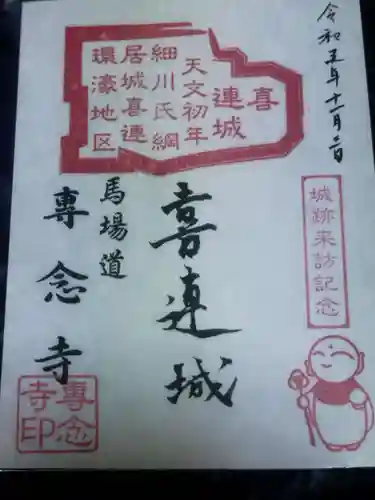 令和五年十一月三日
喜
連城
天文初年
細川氏綱
居城喜連
環濠地区
城跡来訪記念
喜連城
馬場道
專念寺
專念
寺印